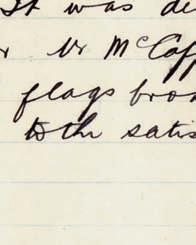 It was de
r Mr McCaf
flags bro
to the satis